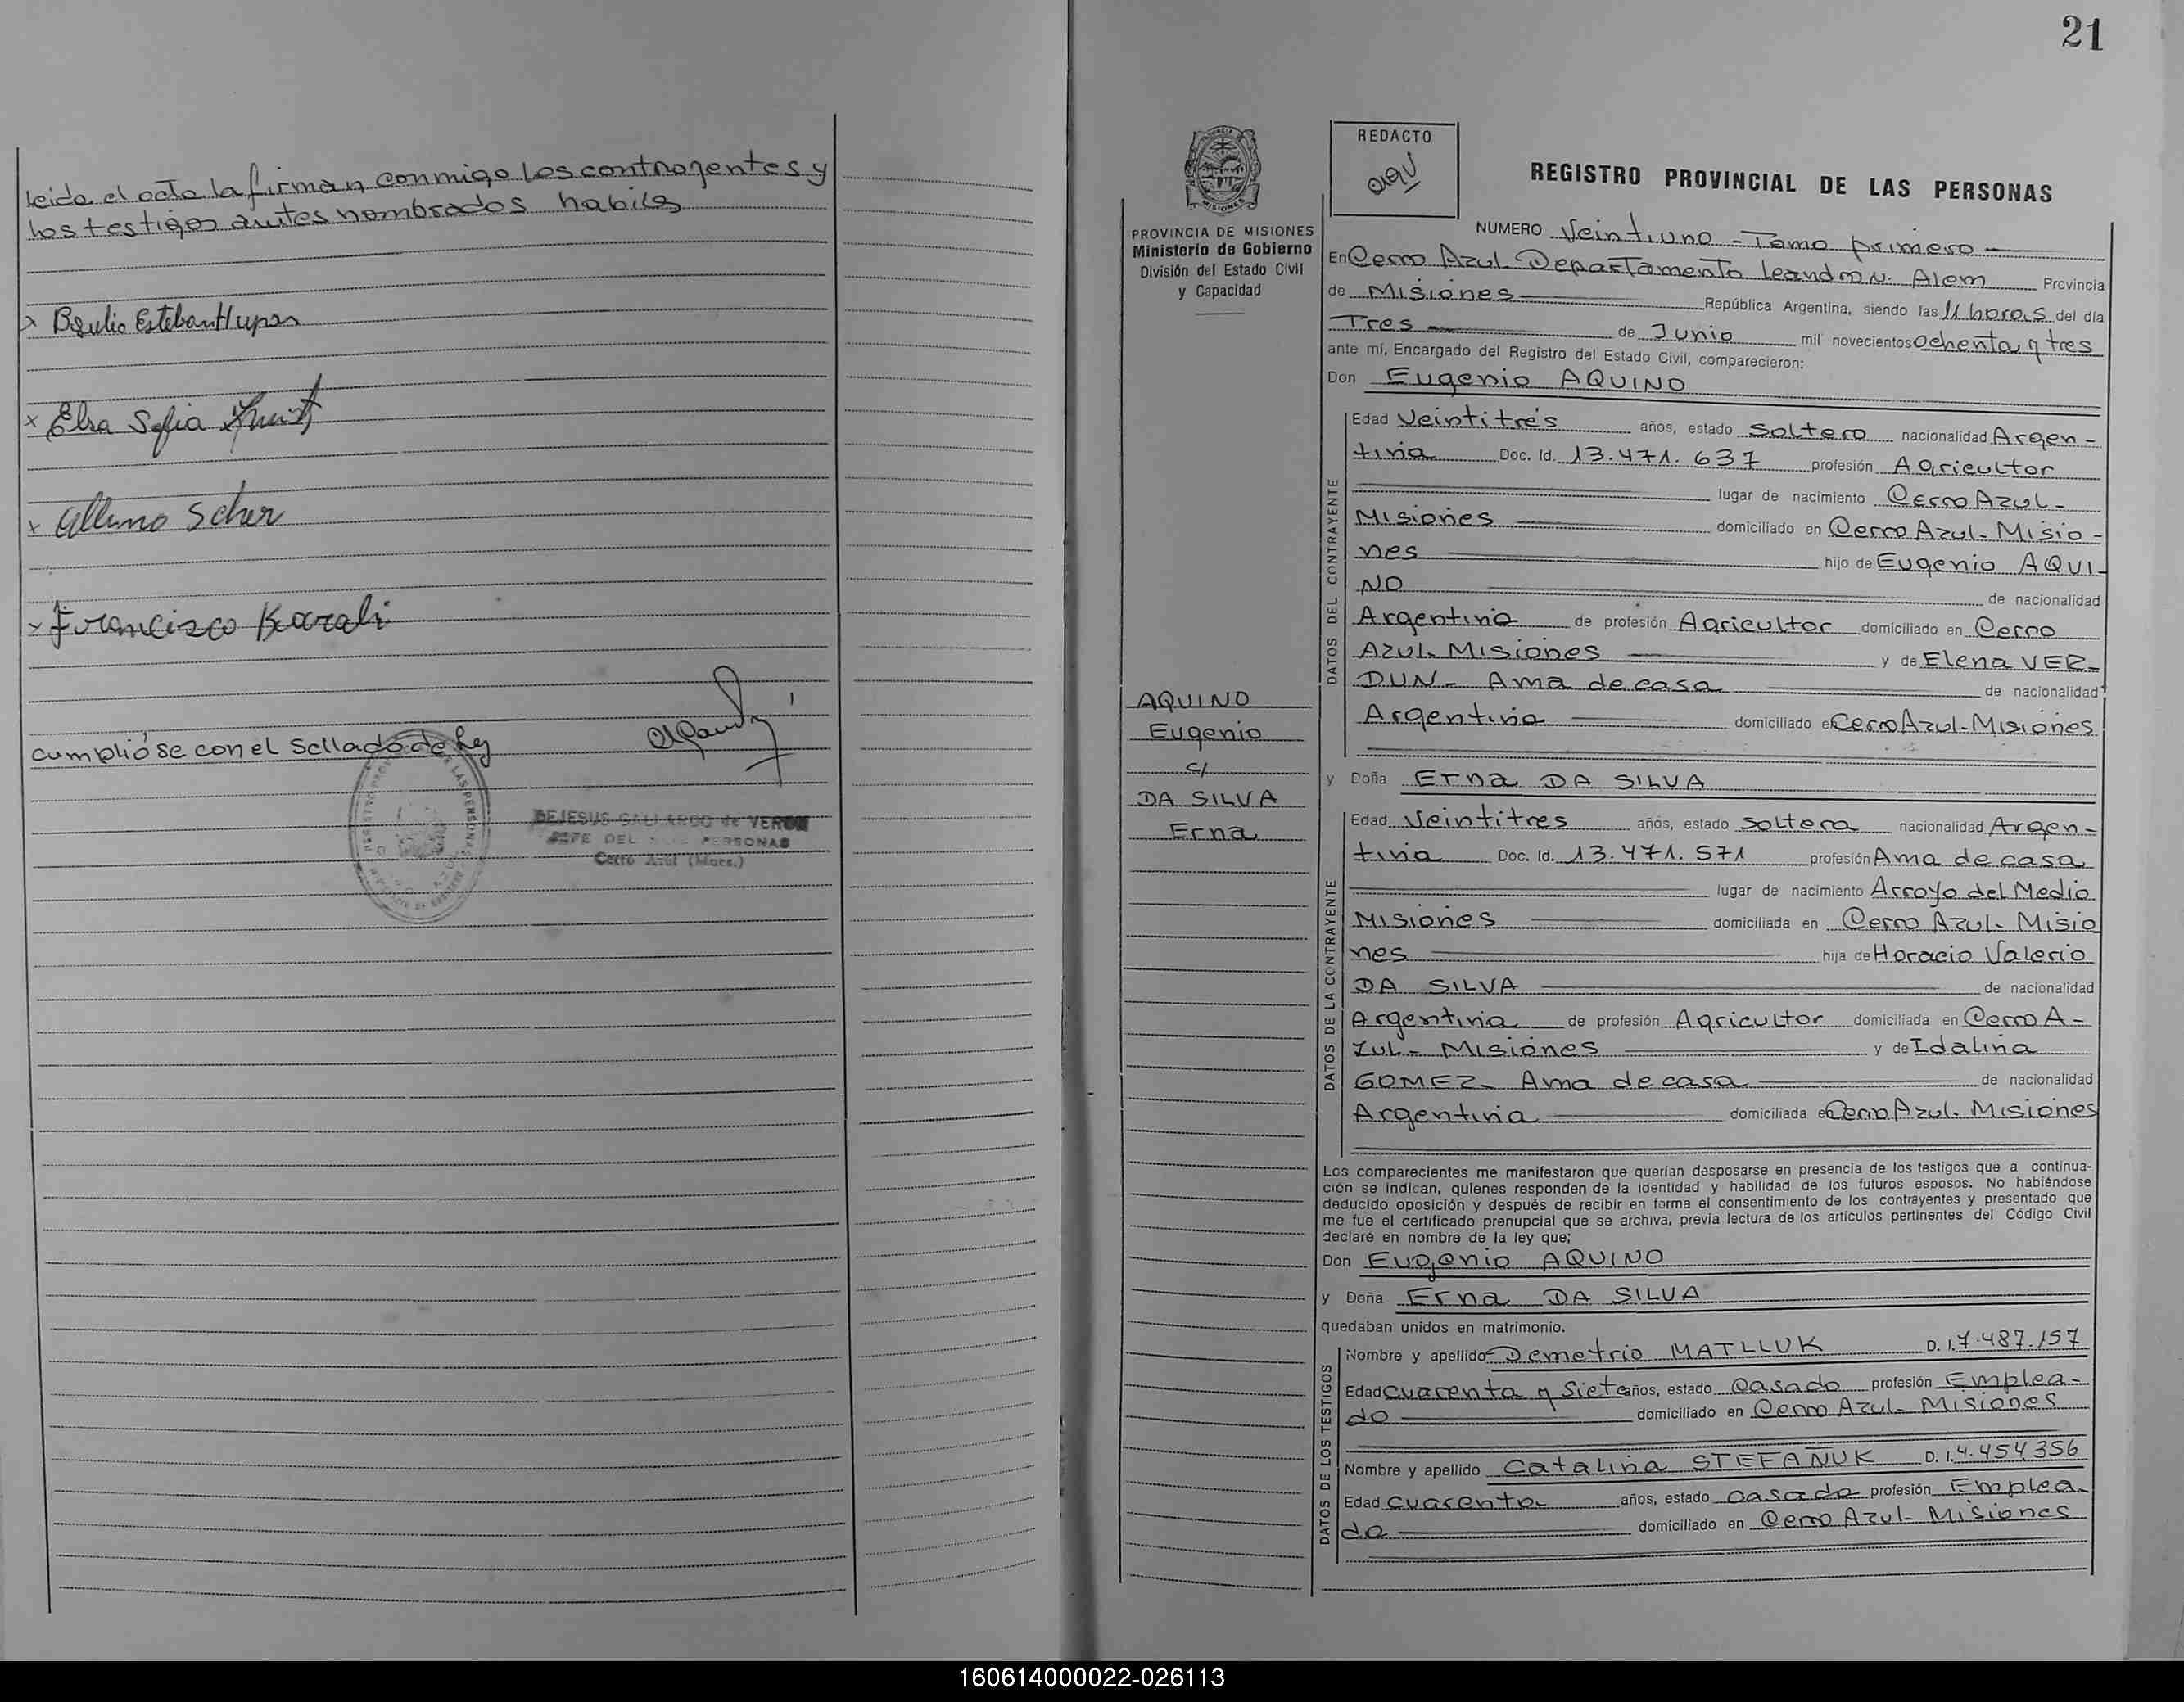 leida el acta la firman conmigo los contrayentes y
los testigos antes nombrados habiles
x Braulio Esteban Hupan
x Elsa Sofia
x Albino Scher
x Francisco
cumplióse con el Sellado de Ley
DEJESUS GALLARDO de VERON
JEFE DEL PERSONAS
Cerro Azul (Mnes.)
21
PROVINCIA DE MISIONES
Ministerio de Gobierno
División del Estado Civil
y Capacidad
AQUINO
Eugenio
c/
DA SILVA
Erna
REDACTO
REGISTRO PROVINCIAL DE LAS PERSONAS
NUMERO Veintiuno - Tomo primero
En Cerro Azul Departamento Leandro N. Alem Provincia
de Misiones República Argentina, siendo las 11 horas del día
Tres de Junio mil novecientos Ochenta y tres
ante mí, Encargado del Registro del Estado Civil, comparecieron:
Don Eugenio AQUINO
DATOS DEL CONTRAYENTE
Edad Veintitrés años, estado Soltero nacionalidad Argen-
tina Doc. Id. 13.471.637 profesión Agricultor
lugar de nacimiento Cerro Azul-
Misiones domiciliado en Cerro Azul- Misio-
nes hijo de Eugenio AQUI-
NO de nacionalidad
Argentina de profesión Agricultor domiciliado en Cerro
Azul- Misiones y de Elena VER-
DUN- Ama de casa de nacionalidad
Argentina domiciliado e Cerro Azul-Misiones
y Doña Erna DA SILVA
DATOS DE LA CONTRAYENTE
Edad Veintitres años, estado soltera nacionalidad Argen-
tina Doc. Id. 13.471.571 profesión Ama de casa
lugar de nacimiento Arroyo del Medio
Misiones domiciliada en Cerro Azul- Misio
nes hija de Horacio Valerio
DA SILVA de nacionalidad
Argentina de profesión Agricultor domiciliada en Cerro A-
zul- Misiones y de Idalina
GOMEZ- Ama de casa de nacionalidad
Argentina domiciliada e Cerro Azul- Misiones
Los comparecientes me manifestaron que querían desposarse en presencia de los testigos que a continua-
ción se indican, quienes responden de la identidad y habilidad de los futuros esposos. No habiéndose
deducido oposición y después de recibir en forma el consentimiento de los contrayentes y presentado que
me fue el certificado prenupcial que se archiva, previa lectura de los artículos pertinentes del Código Civil
declaré en nombre de la ley que;
Don Eugenio AQUINO
y Doña Erna DA SILVA
quedaban unidos en matrimonio.
DATOS DE LOS TESTIGOS
Nombre y apellido Demetrio MATLLUK D. I. 7.487.157
Edad cuarenta y siete años, estado Casado profesión Emplea-
do domiciliado en Cerro Azul- Misiones
Nombre y apellido Catalina STEFANUK D. I. 4.454356
Edad cuarenta años, estado casada profesión Emplea-
da domiciliado en Cerro Azul- Misiones
160614000022-026113